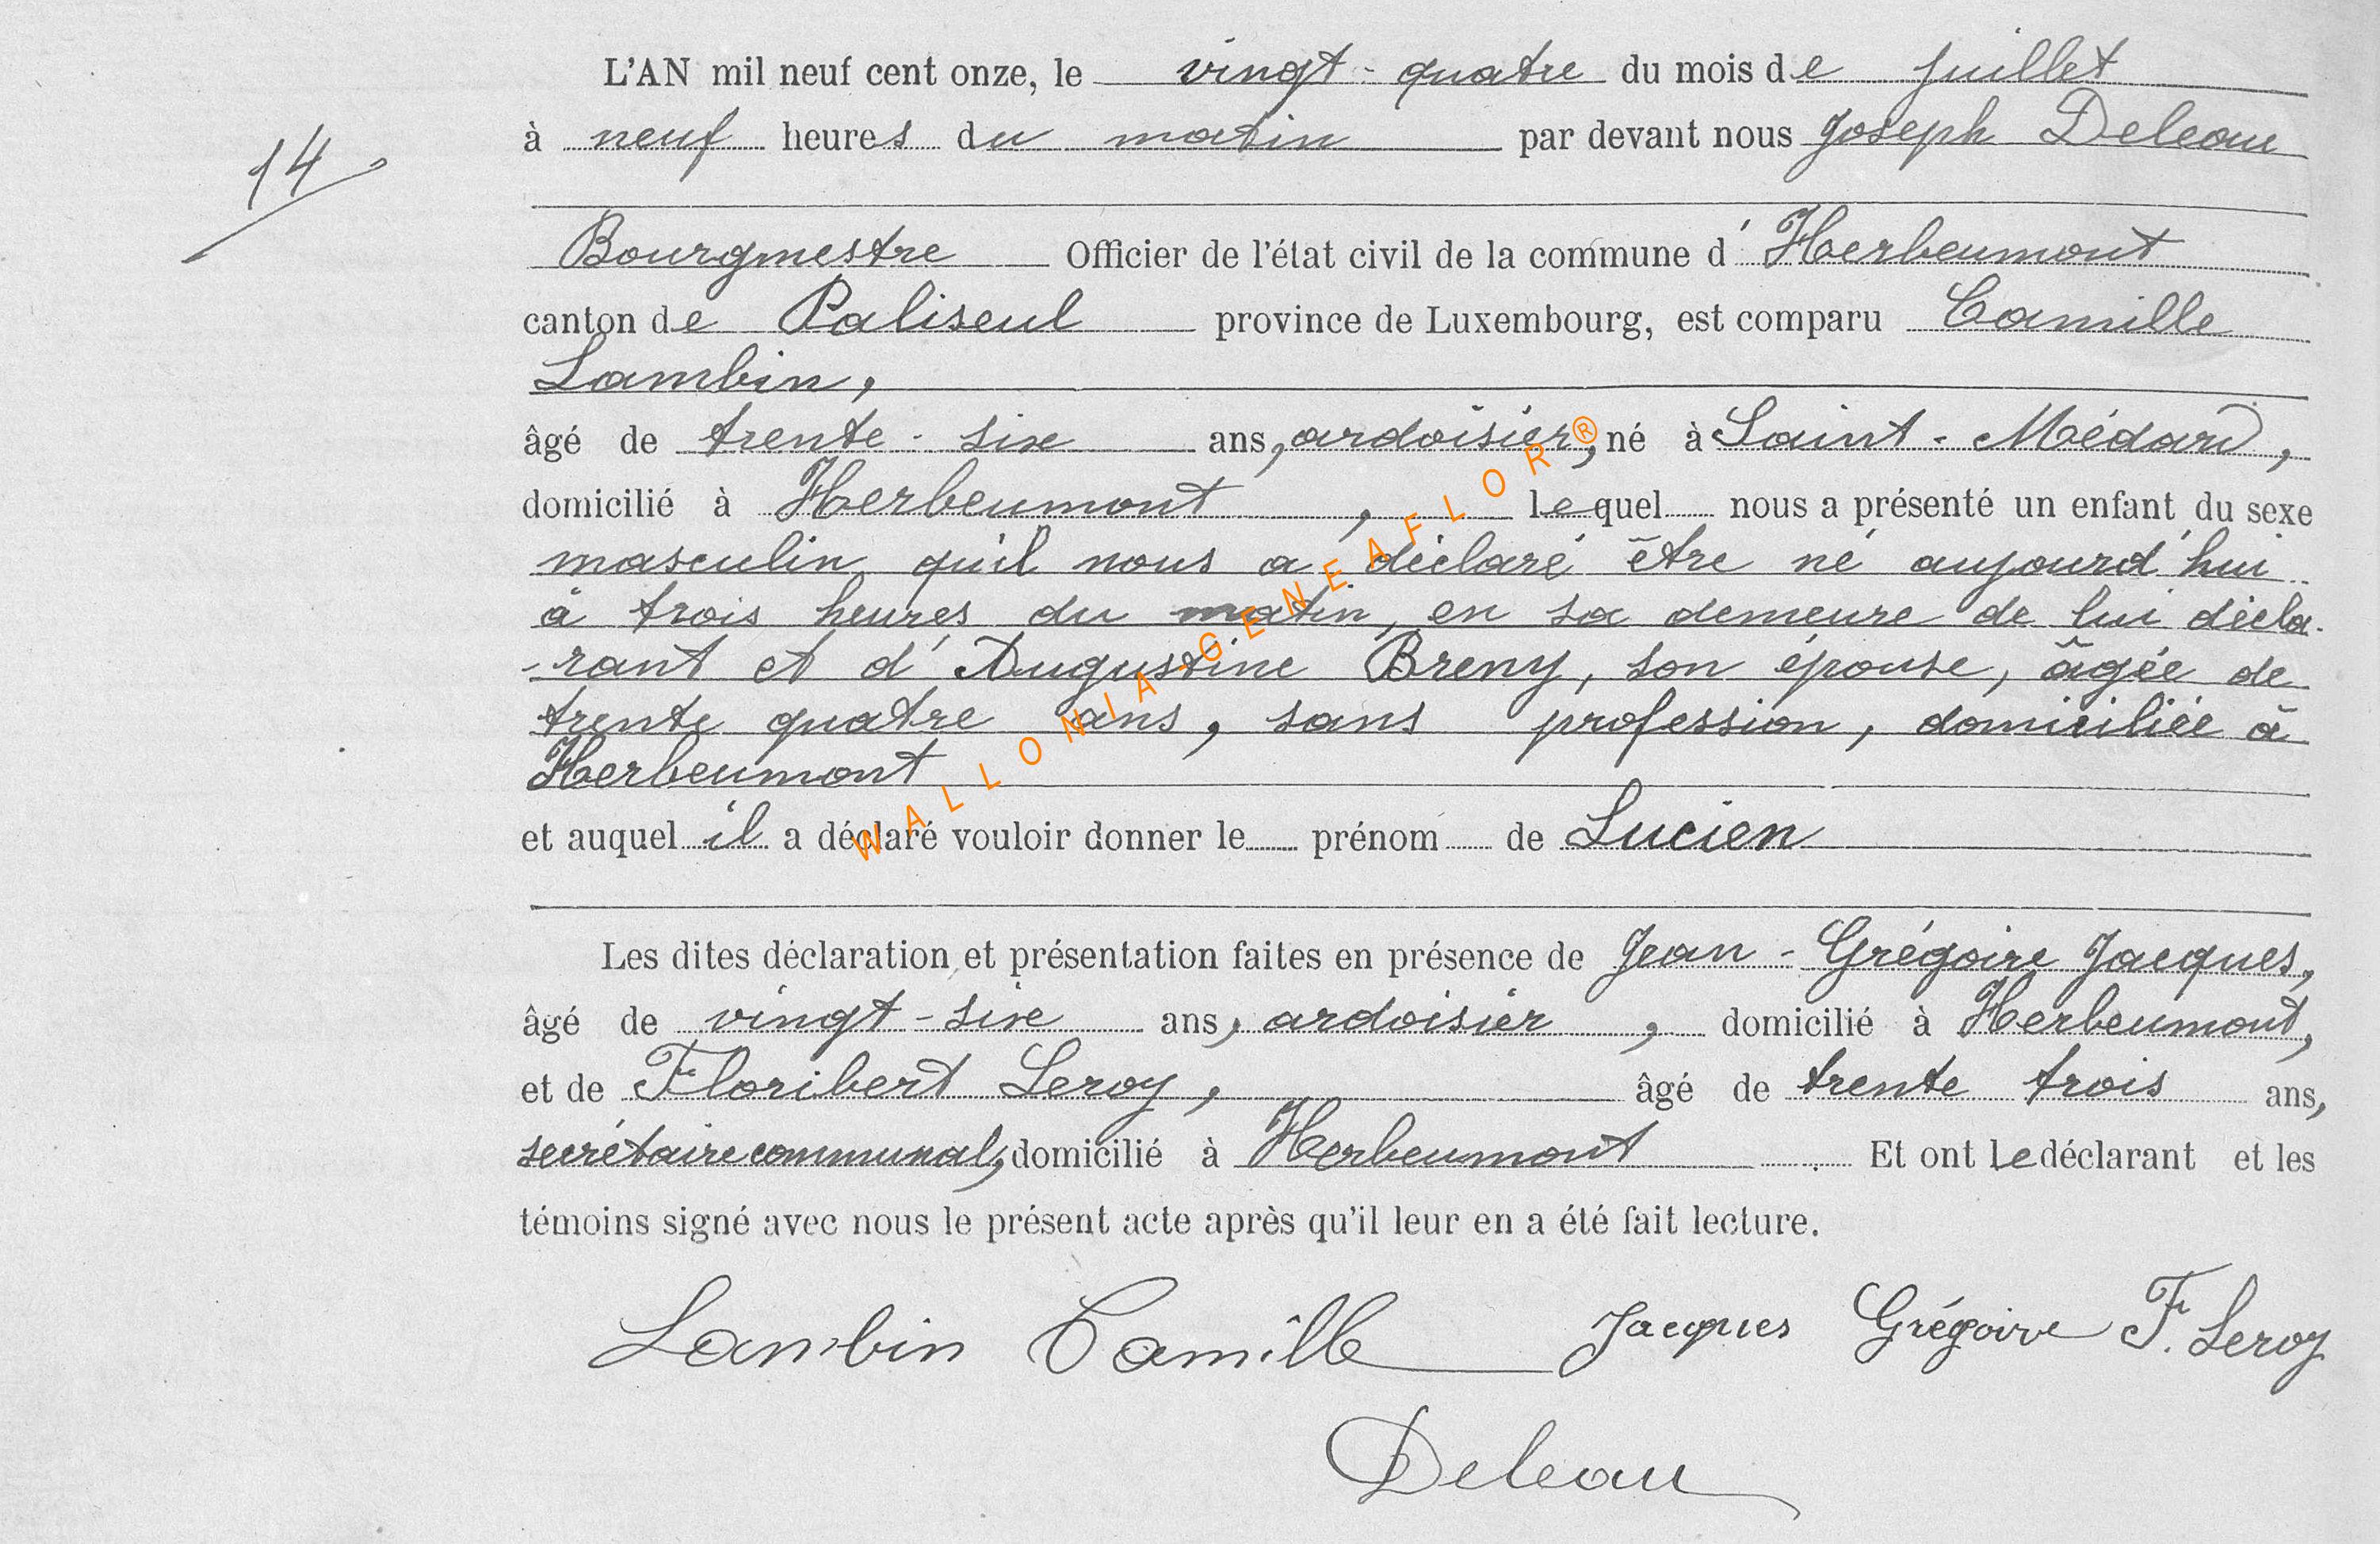 L'AN mil neuf cent onze, le vingt-quatre du mois de juillet
14
à neuf heures du matin par devant nous Joseph Deleau
Bourgmestre Officier de l'état civil de la commune d'Herbeumont
canton de Paliseul province de Luxembourg, est comparu Camille
Lambin,
âgé de trente-six ans, ardoisier, né à Saint-Médard,
domicilié à Herbeumont, lequel nous a présenté un enfant du sexe
masculin qu'il nous a déclaré être né aujourd'hui
à trois heures du matin, en sa demeure de lui décla-
-rant et d'Augustine Breny, son épouse, âgée de
trente quatre ans, sans profession, domiciliée à
Herbeumont
et auquel il a déclaré vouloir donner le prénom de Lucien
Les dites déclaration et présentation faites en présence de Jean-Grégoire Jacques,
âgé de vingt-six ans, ardoisier, domicilié à Herbeumont,
et de Floribert Leroy, âgé de trente trois ans,
secrétaire communal, domicilié à Herbeumont. Et ont le déclarant et les
témoins signé avec nous le présent acte après qu'il leur en a été fait lecture.
Lambin Camille Jacques Grégoire F. Leroy
Deleau
WALLONIA-GENEAFLOR®